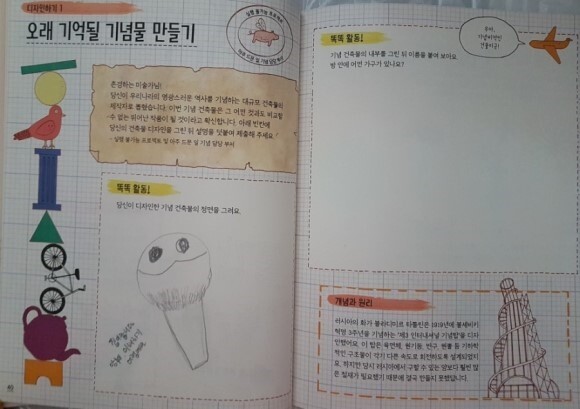 디자인하기 1
오래 기억될 기념물 만들기
실행 불가능 프로젝트
존경하는 미술가님!
당신이 우리나라의 영광스러운 역사를 기념하는 대규모 건축물의
제작자로 뽑혔습니다. 이번 기념 건축물은 그 어떤 것과도 비교할
수 없는 뛰어난 작품이 될 것이라고 확신합니다. 아래 빈칸에
당신의 건축물 디자인을 그린 뒤 설명을 덧붙여 제출해 주세요.
- 실행 불가능 프로젝트 및 아주 드문 일 기념 담당 부서
똑똑 활동!
당신이 디자인한 기념 건축물의 정면을 그려요.
똑똑 활동!
기념 건축물의 내부를 그린 뒤 이름을 붙여 보아요.
방 안에 어떤 가구가 있나요?
우아,
기념비적인
건물이군!
개념과 원리
러시아의 화가 블라디미르 타틀린은 1919년에 볼셰비키
혁명 3주년을 기념하는 '제3 인터내셔널 기념탑'을 디자
인했어요. 이 탑은 육면체, 원기둥, 반구, 원뿔 등 기하학
적인 구조물이 각기 다른 속도로 회전하도록 설계되었지
요. 하지만 당시 러시아에서 구할 수 있는 양보다 훨씬 많
은 철재가 필요했기 때문에 결국 만들지 못했답니다.